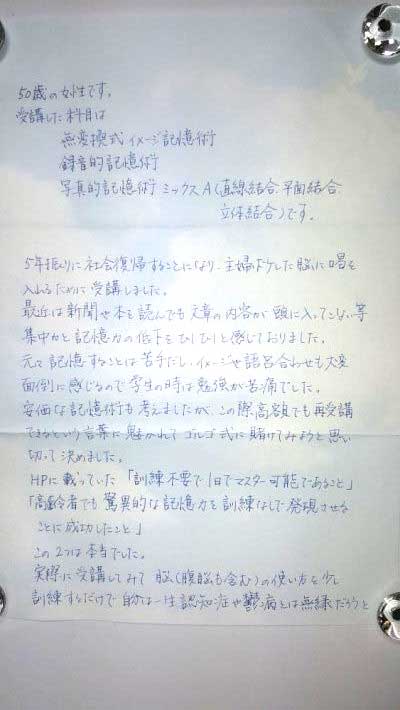 50歳の女性です。
受講した科目は
無変換式イメージ記憶術
録音的記憶術
写真的記憶術ミックスA(直線結合.平面結合.
立体結合)です。
5年振りに社会復帰することになり、主婦ボケした脳に喝を
入れるために受講しました。
最近は新聞や本を読んでも文章の内容が頭に入ってこない等
集中力と記憶力の低下をひしひしと感じておりました。
元々記憶することは苦手だし、イメージや語呂合わせも大変
面倒に感じるので学生の時は勉強が苦痛でした。
安価な記憶術も考えましたが、この際高額でも再受講
できるという言葉に魅かれてゴルゴ式に賭けてみようと思い
切って決めました。
HPに載っていた「訓練不要で1日でマスター可能であること」
「高齢者でも驚異的な記憶力を訓練なしで発現させる
ことに成功したこと」
この2つは本当でした。
実際に受講してみて脳(腹脳も含む)の使い方を少し
訓練するだけで自分は一生認知症や鬱病とは無縁だろうと